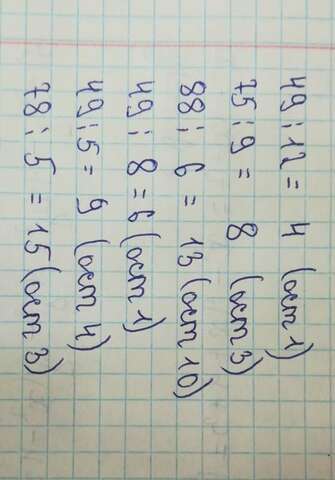 49 : 12 = 4 (ост 1)
75 : 9 = 8 (ост 3)
88 : 6 = 13 (ост 10)
49 : 8 = 6 (ост 1)
49 : 5 = 9 (ост 4)
78 : 5 = 15 (ост 3)